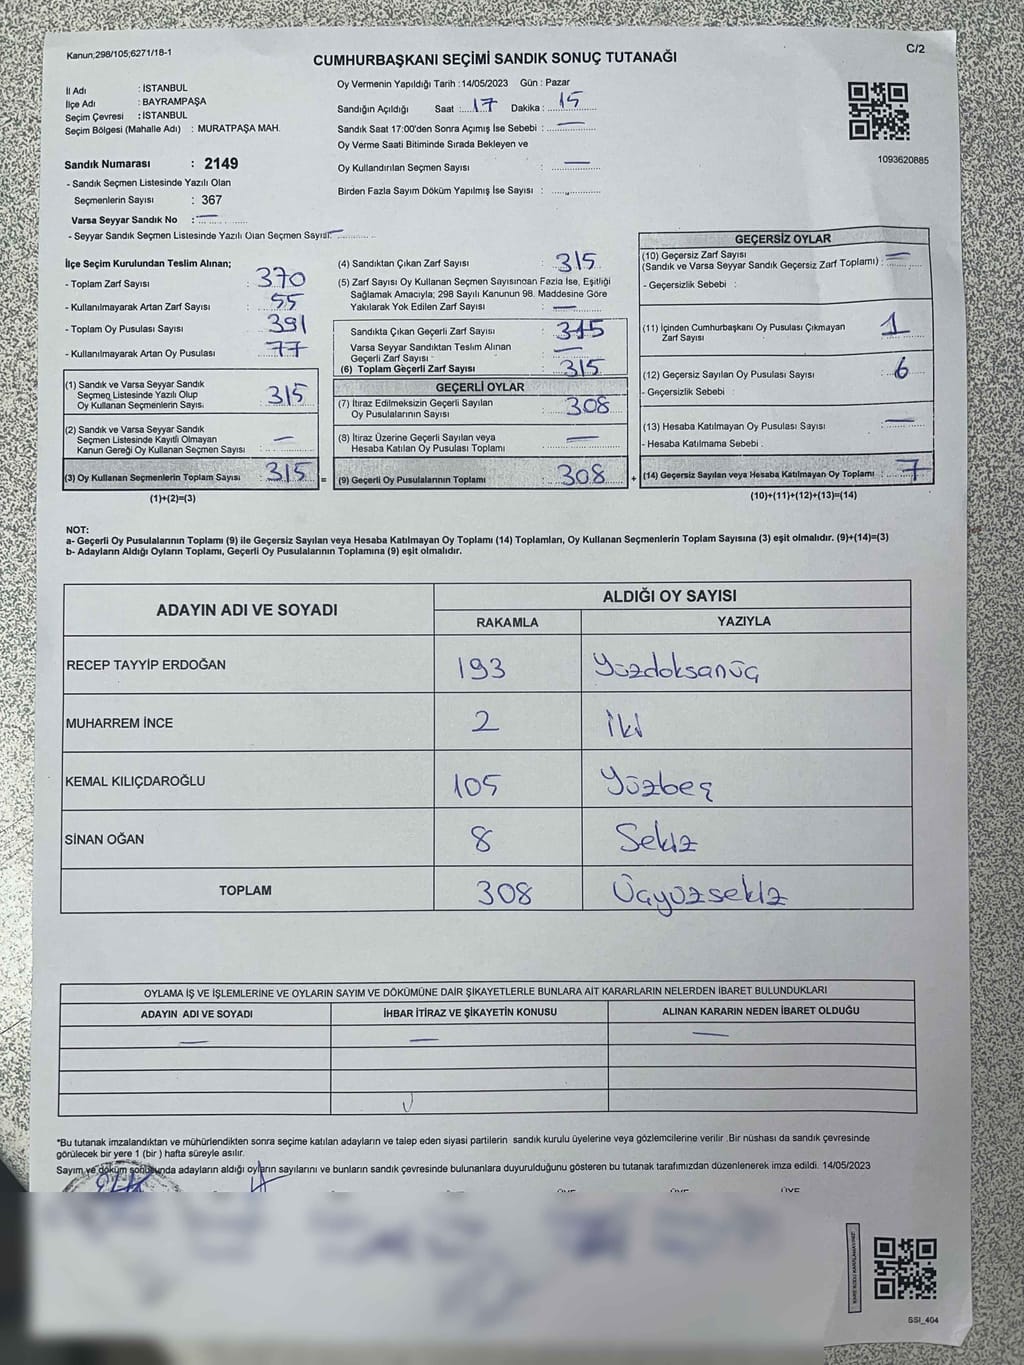 Kanun;298/105;6271/18-1
C/2
CUMHURBAŞKANI SEÇİMİ SANDIK SONUÇ TUTANAĞI
İl Adı : İSTANBUL
İlçe Adı : BAYRAMPAŞA
Seçim Çevresi : İSTANBUL
Seçim Bölgesi (Mahalle Adı) : MURATPAŞA MAH.
Sandık Numarası : 2149
- Sandık Seçmen Listesinde Yazılı Olan
Seçmenlerin Sayısı : 367
Varsa Seyyar Sandık No : —
- Seyyar Sandık Seçmen Listesinde Yazılı Olan Seçmen Sayısı: —
Oy Vermenin Yapıldığı Tarih : 14/05/2023 Gün : Pazar
Sandığın Açıldığı Saat : 17 Dakika : 15
Sandık Saat 17:00'den Sonra Açımış İse Sebebi : —
Oy Verme Saati Bitiminde Sırada Bekleyen ve
Oy Kullandırılan Seçmen Sayısı : —
Birden Fazla Sayım Döküm Yapılmış İse Sayısı :
1093620885
İlçe Seçim Kurulundan Teslim Alınan;
- Toplam Zarf Sayısı : 370
- Kullanılmayarak Artan Zarf Sayısı : 55
- Toplam Oy Pusulası Sayısı : 391
- Kullanılmayarak Artan Oy Pusulası : 77
(1) Sandık ve Varsa Seyyar Sandık
Seçmen Listesinde Yazılı Olup
Oy Kullanan Seçmenlerin Sayısı : 315
(2) Sandık ve Varsa Seyyar Sandık
Seçmen Listesinde Kayıtlı Olmayan
Kanun Gereği Oy Kullanan Seçmen Sayısı : —
(3) Oy Kullanan Seçmenlerin Toplam Sayısı : 315 =
(1)+(2)=(3)
(4) Sandıktan Çıkan Zarf Sayısı : 315
(5) Zarf Sayısı Oy Kullanan Seçmen Sayısından Fazla İse, Eşitliği
Sağlamak Amacıyla; 298 Sayılı Kanunun 98. Maddesine Göre
Yakılarak Yok Edilen Zarf Sayısı : —
Sandıkta Çıkan Geçerli Zarf Sayısı : 315
Varsa Seyyar Sandıktan Teslim Alınan
Geçerli Zarf Sayısı : —
(6) Toplam Geçerli Zarf Sayısı : 315
GEÇERLİ OYLAR
(7) İtiraz Edilmeksizin Geçerli Sayılan
Oy Pusulalarının Sayısı : 308
(8) İtiraz Üzerine Geçerli Sayılan veya
Hesaba Katılan Oy Pusulası Toplamı : —
(9) Geçerli Oy Pusulalarının Toplamı : 308 +
GEÇERSİZ OYLAR
(10) Geçersiz Zarf Sayısı
(Sandık ve Varsa Seyyar Sandık Geçersiz Zarf Toplamı) : —
- Geçersizlik Sebebi :
(11) İçinden Cumhurbaşkanı Oy Pusulası Çıkmayan
Zarf Sayısı : 1
(12) Geçersiz Sayılan Oy Pusulası Sayısı : 6
- Geçersizlik Sebebi
(13) Hesaba Katılmayan Oy Pusulası Sayısı : —
- Hesaba Katılmama Sebebi :
(14) Geçersiz Sayılan veya Hesaba Katılmayan Oy Toplamı : 7
(10)+(11)+(12)+(13)=(14)
NOT:
a- Geçerli Oy Pusulalarının Toplamı (9) ile Geçersiz Sayılan veya Hesaba Katılmayan Oy Toplamı (14) Toplamları, Oy Kullanan Seçmenlerin Toplam Sayısına (3) eşit olmalıdır. (9)+(14)=(3)
b- Adayların Aldığı Oyların Toplamı, Geçerli Oy Pusulalarının Toplamına (9) eşit olmalıdır.
ADAYIN ADI VE SOYADI
ALDIĞI OY SAYISI
RAKAMLA YAZIYLA
RECEP TAYYİP ERDOĞAN 193 Yüzdoksanüç
MUHARREM İNCE 2 İki
KEMAL KILIÇDAROĞLU 105 Yüzbeş
SİNAN OĞAN 8 Sekiz
TOPLAM 308 Üçyüzsekiz
OYLAMA İŞ VE İŞLEMLERİNE VE OYLARIN SAYIM VE DÖKÜMÜNE DAİR ŞİKAYETLERLE BUNLARA AİT KARARLARIN NELERDEN İBARET BULUNDUKLARI
ADAYIN ADI VE SOYADI İHBAR İTİRAZ VE ŞİKAYETİN KONUSU ALINAN KARARIN NEDEN İBARET OLDUĞU
— — —
*Bu tutanak imzalandıktan ve mühürlendikten sonra seçime katılan adayların ve talep eden siyasi partilerin sandık kurulu üyelerine veya gözlemcilerine verilir .Bir nüshası da sandık çevresinde
görülecek bir yere 1 (bir ) hafta süreyle asılır.
Sayım ve döküm sonusunda adayların aldığı oyların sayılarını ve bunların sandık çevresinde bulunanlara duyurulduğunu gösteren bu tutanak tarafımızdan düzenlenerek imza edildi. 14/05/2023
ÜYE ÜYE ÜYE
SSI_404